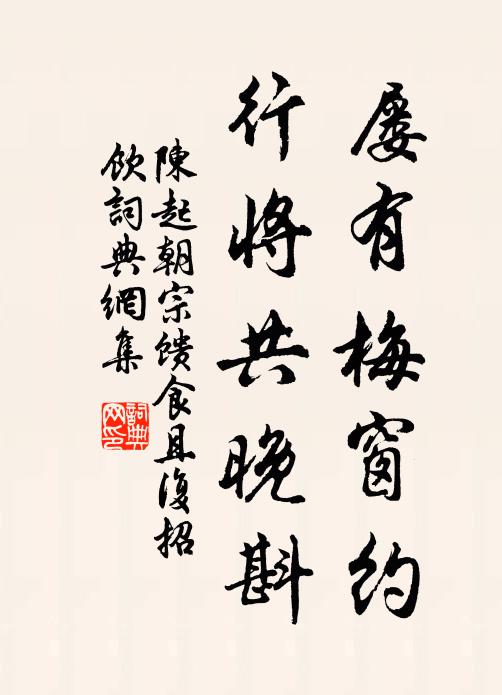 屡有梅窗約
行將共晚斟
陳起朝宗馈食且復招
飲詞典網集
詞典网印